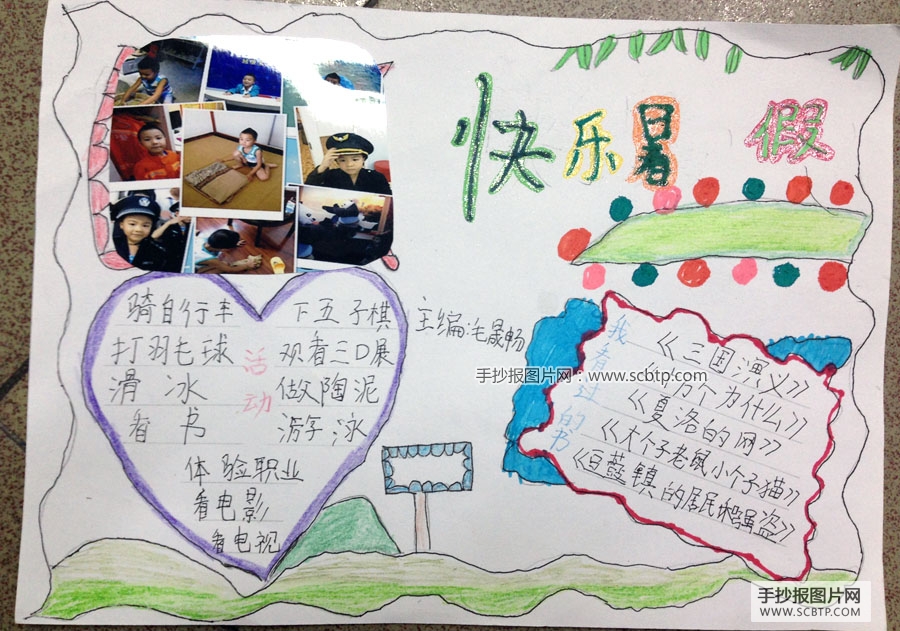 快乐暑假
骑自行车 下五子棋
打羽毛球 观看三D展
滑冰 做陶泥
看书 游泳
体验职业
看电影
看电视
活动
主编:毛晟畅
我看过的书
《三国演义》
万个为什么》
《夏洛的网》
《大个子老鼠小个子猫》
《豆蔻镇的居民和强盗》
手抄报图片网:www.scbtp.com
手抄报图片网
WWW.SCBTP.COM